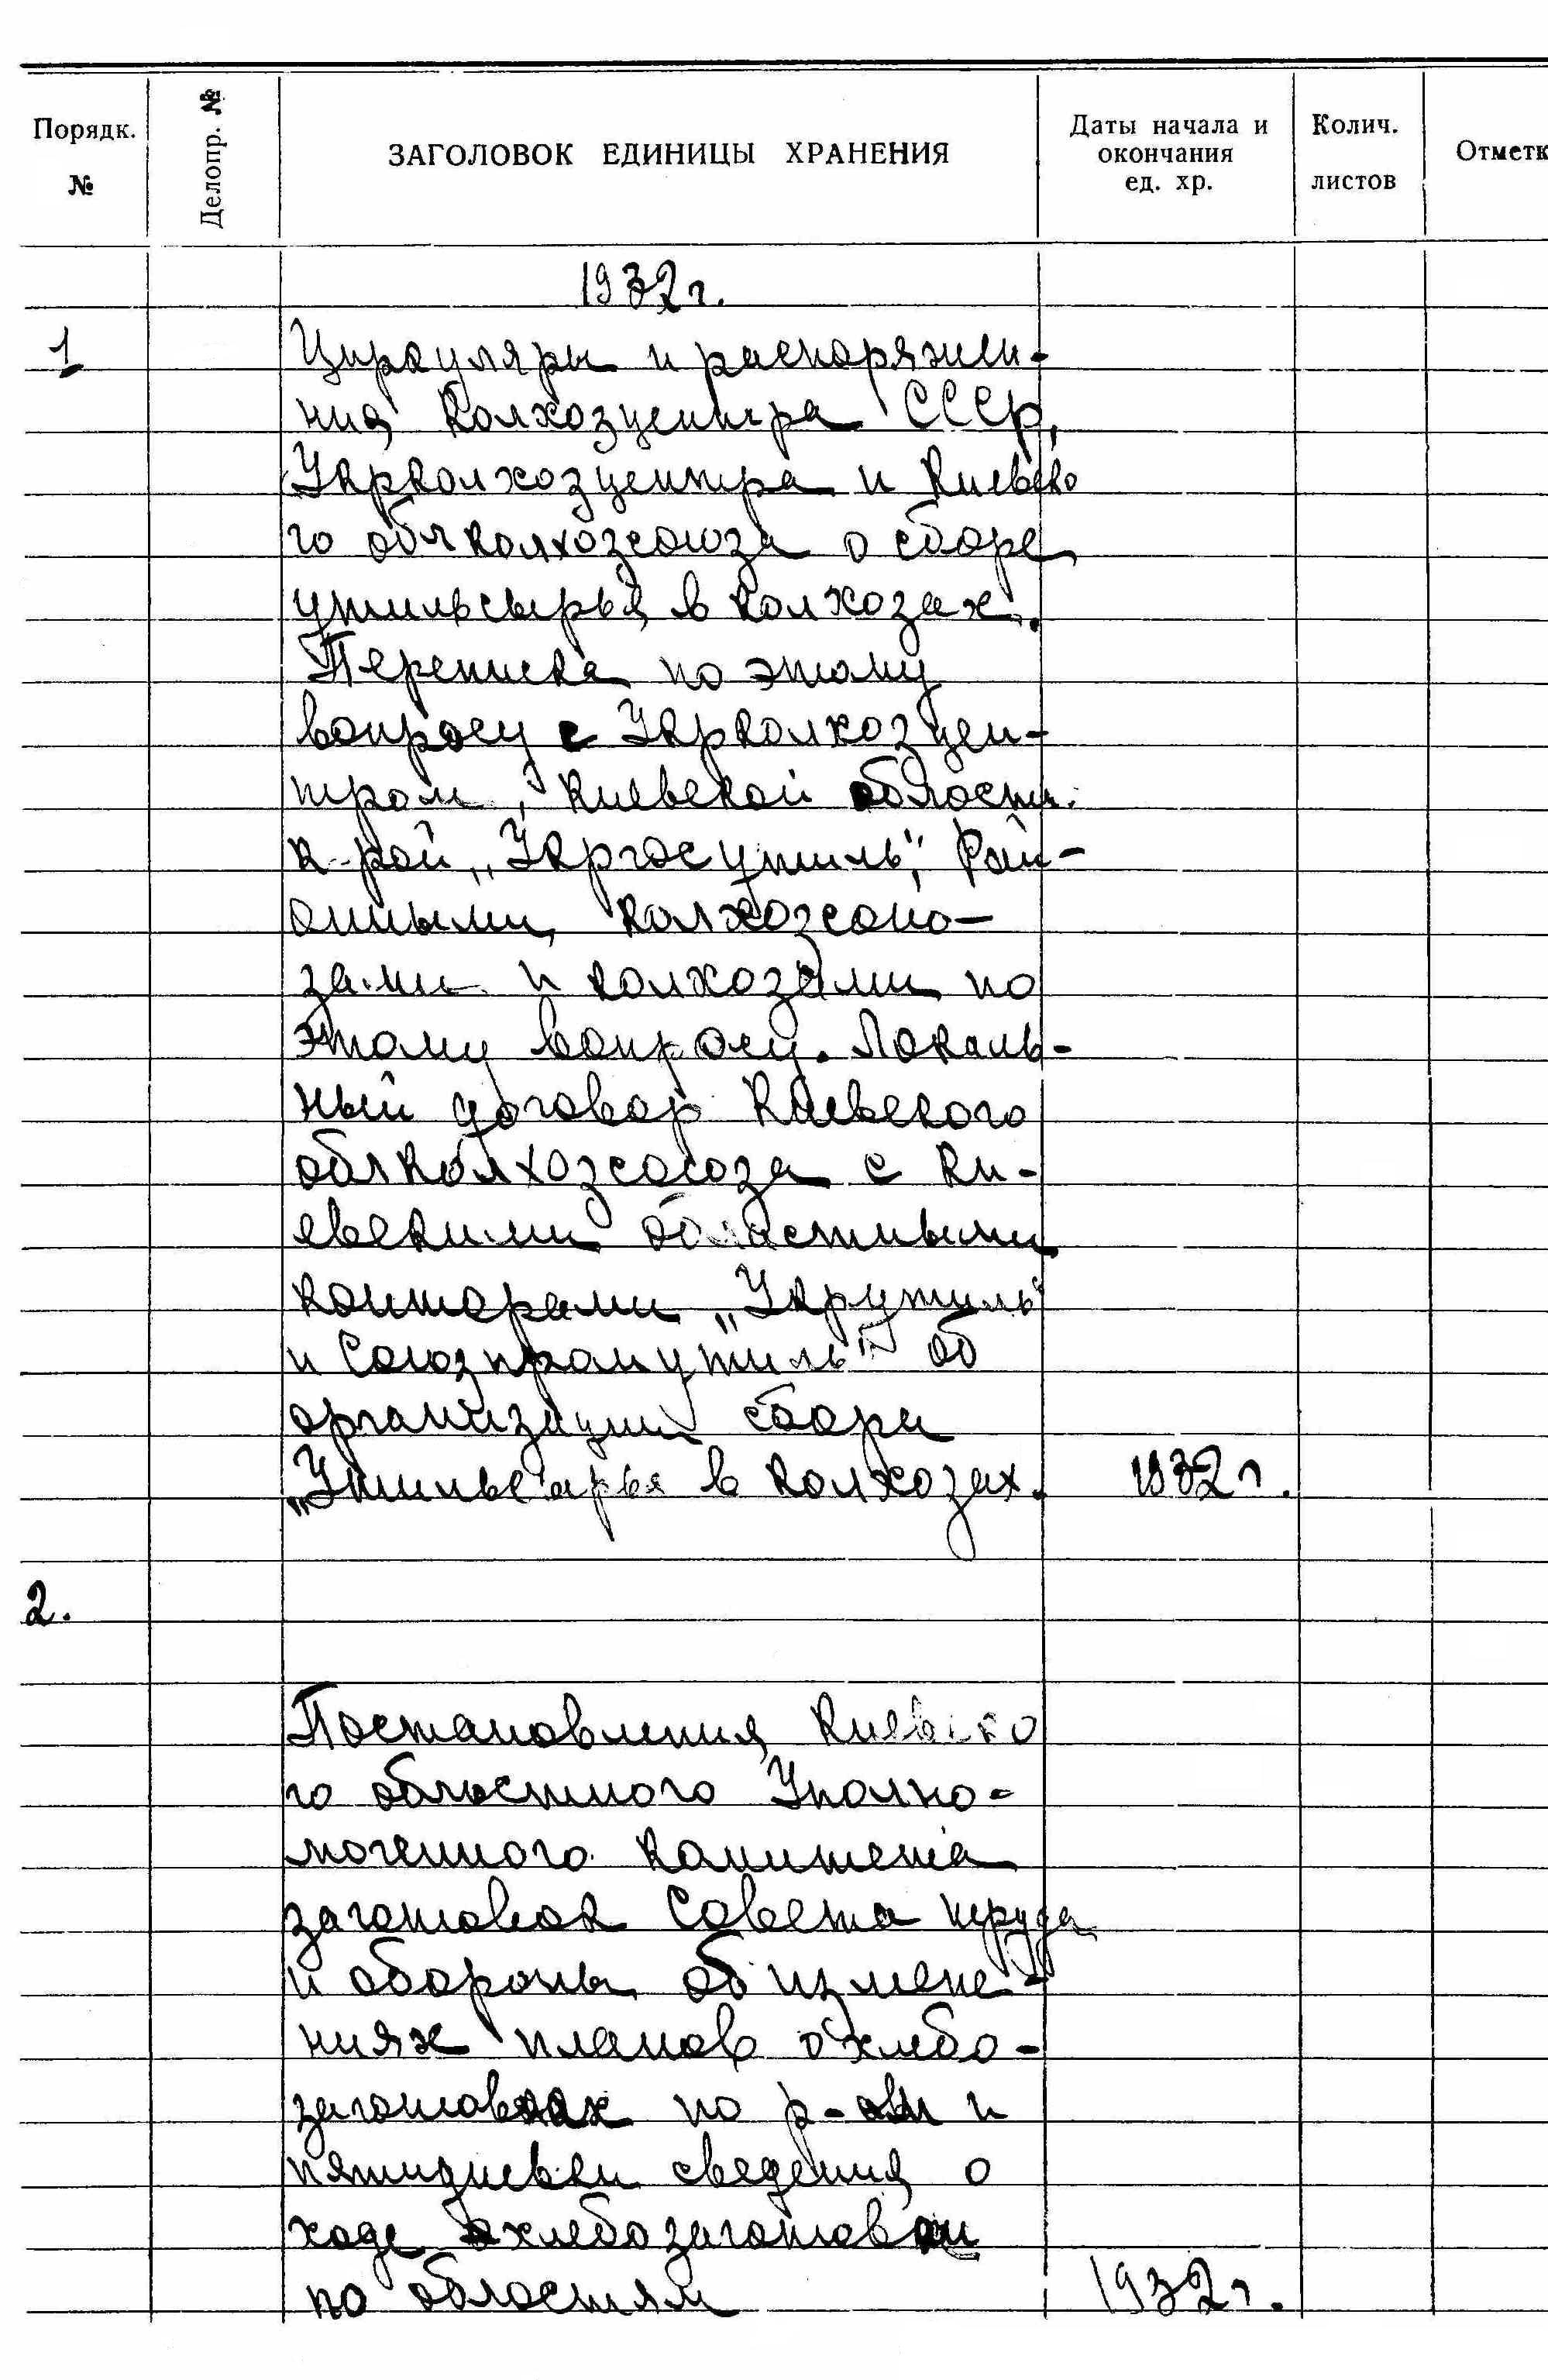 Порядк. №
Делопр. №
ЗАГОЛОВОК ЕДИНИЦЫ ХРАНЕНИЯ
Даты начала и окончания ед. хр.
Колич. листов
Отметк
1932 г.
1 Циркуляры и распоряже-
ния Колхозцентра СССР,
Укрколхозцентра и Киевско
го облколхозсоюза о сборе
утильсырья в колхозах.
Переписка по этому
вопросу с Укрколхозцен-
тром, Киевской областн.
к-рой „Укргосутиль", Рай-
онными колхозсою-
зами и колхозами по
этому вопросу. Локаль-
ный договор Киевского
облколхозсоюза с Ки-
евскими областными
конторами „Укрутиль"
и Союзпромутиль" об
организации сбора
„Утильсырья в колхозах. 1932 г.
2.
Постановления Киевско
го областного Уполно-
моченного комитета
заготовок Совета труда
и обороны об измене-
ниях планов о хлебо-
заготовках по р-ам и
пятидневки сведения о
ходе хлебозаготовки
по областям 1932 г.